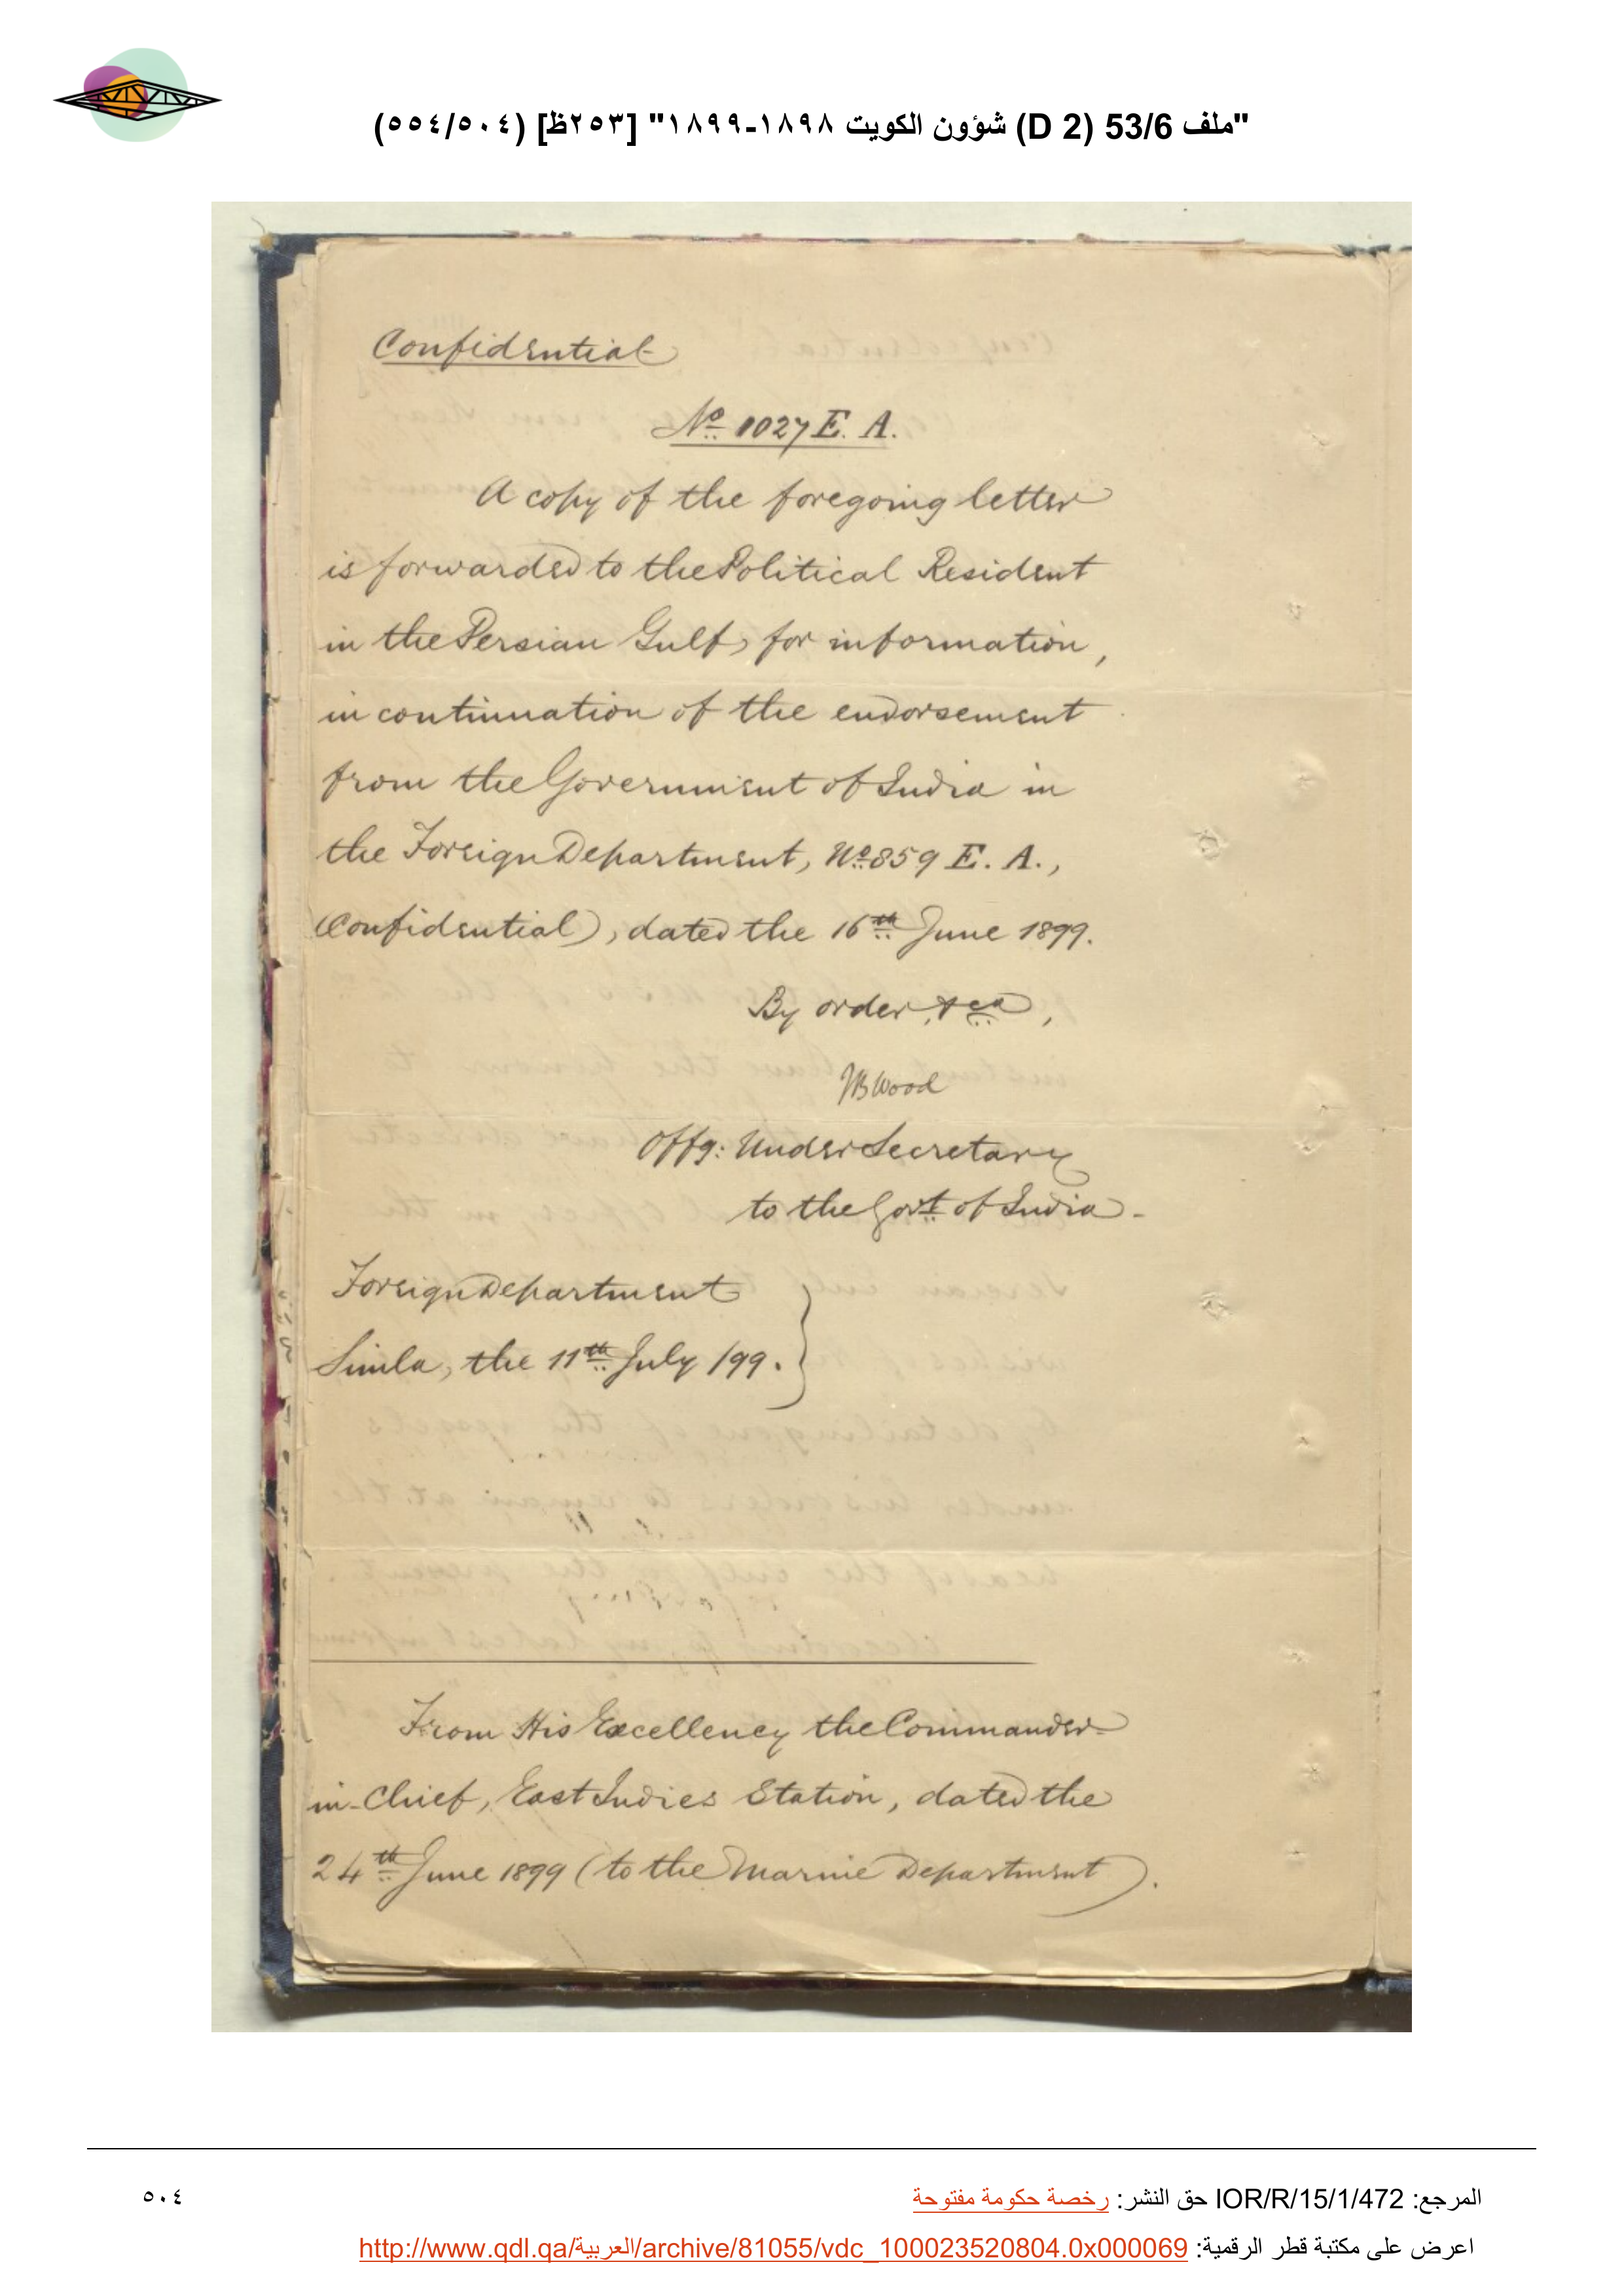 "ملف 53/6 (D 2) شؤون الكويت ١٨٩٨-١٨٩٩" [٢٥٣ظ] (٥٥٤/٥٠٤)
Confidential
No. 1027 E. A.
A copy of the foregoing letter
is forwarded to the Political Resident
in the Persian Gulf, for information,
in continuation of the endorsement
from the Government of India in
the Foreign Department, No. 859 E. A.,
(Confidential), dated the 16th June 1899.
By order, &ca,
JBWood
Offg: Under Secretary
to the Govt. of India.
Foreign Department
Simla, the 11th July /99.
From His Excellency the Commander-
in-Chief, East Indies Station, dated the
24th June 1899 (to the Marine Department).
المرجع: IOR/R/15/1/472 حق النشر: رخصة حكومة مفتوحة
٥٠٤
اعرض على مكتبة قطر الرقمية: http://www.qdl.qa/العربية/archive/81055/vdc_100023520804.0x000069